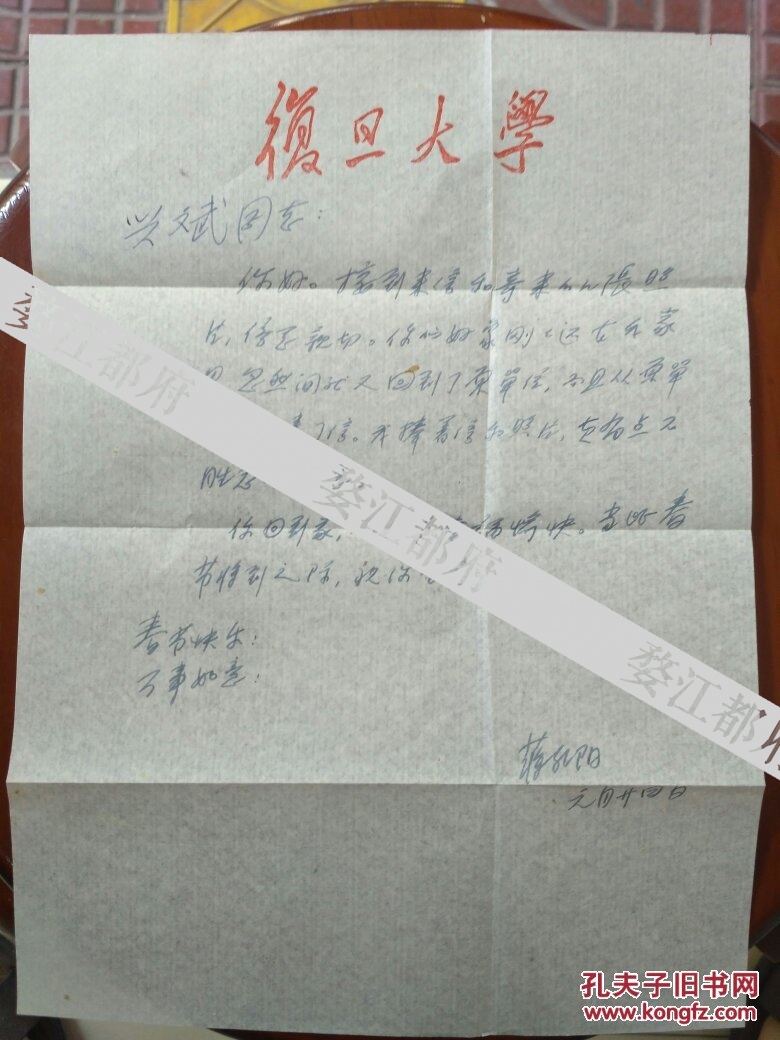 復旦大學
兴斌同志：
你好。接到来信和寄来的几張照
片，倍感親切。你的好象刚刚还在我家
忽然间就又回到了原單位，而且从原單
了信。我捧着信和照片，真有点不
胜
你回到家，愉快。当此春
节将到之际，祝你
春节快乐！
万事如意！
蒋孔阳
元月廿四日
婺江都府
婺江都府
婺江都府
孔夫子旧书网
www.kongfz.com